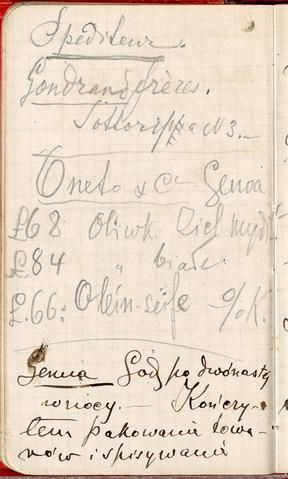 Spediteur.
Gondrand frères.
Sottoripa N3.—
Oneto & Cie Genoa
£68 Oliwk. Ziel. mydł.
£84 " białe
£.66: Olein-seife %K.
Genua God. po dwónasty
wnocy. — Kończy-
łem pakowanie towa-
rów i spisywanie